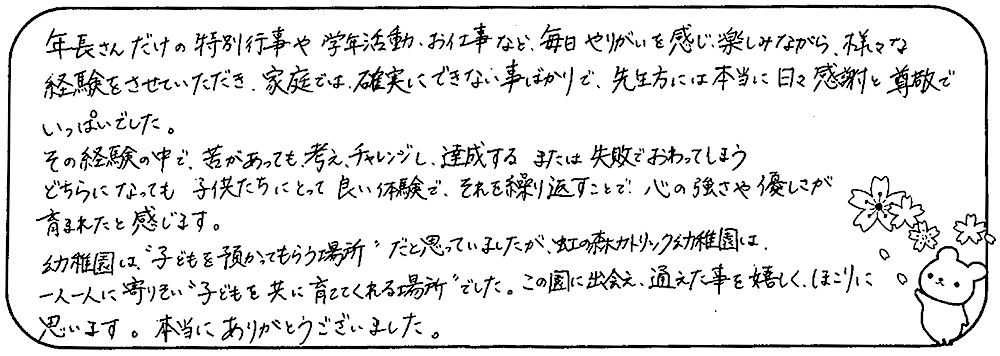 年長さんだけの特別行事や学年活動、お仕事など、毎日やりがいを感じ楽しみながら、様々な
経験をさせていただき、家庭では、確実にできない事ばかりで、先生方には本当に日々感謝と尊敬で
いっぱいでした。
その経験の中で、苦があっても考え、チャレンジし、達成する または失敗でおわってしまう
どちらになっても 子供たちにとって良い体験で、それを繰り返すことで心の強さや優しさが
育まれたと感じます。
幼稚園は、"子どもを預かってもらう場所"だと思っていましたが、虹の森カトリック幼稚園は、
一人一人に寄りそい"子どもを共に育ててくれる場所"でした。この園に出会え、通えた事を嬉しく、ほこりに
思います。本当にありがとうございました。